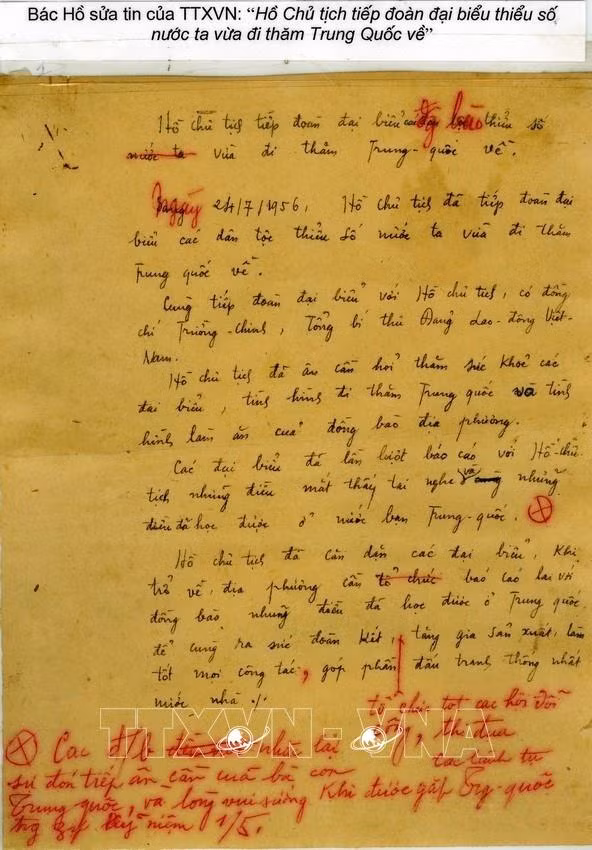 Bác Hồ sửa tin của TTXVN: “Hồ Chủ tịch tiếp đoàn đại biểu thiểu số
nước ta vừa đi thăm Trung Quốc về”
Hồ chủ tịch tiếp đoàn đại biểu đg bào thiểu số
nước ta vừa đi thăm Trung-quốc về.
Ngày 24/7/1956, Hồ chủ tịch đã tiếp đoàn đại
biểu các dân tộc thiểu số nước ta vừa đi thăm
Trung quốc về.
Cùng tiếp đoàn đại biểu với Hồ chủ tịch, có đồng
chí Trường-chinh, Tổng bí thư Đảng Lao-động Việt-
Nam.
Hồ chủ tịch đã ân cần hỏi thăm sức khoẻ các
đại biểu, tình hình đi thăm Trung quốc và tình
hình làm ăn của đồng bào địa phương.
Các đại biểu đã lần lượt báo cáo với Hồ-chủ
tịch những điều mắt thấy tai nghe và những
điều đã học được ở nước bạn Trung-quốc.
Hồ chủ tịch đã căn dặn các đại biểu, khi
trở về địa phương cần tổ chức báo cáo lại với
đồng bào những điều đã học được ở Trung quốc
để cùng ra sức đoàn kết, tăng gia sản xuất, làm
tốt mọi công tác, góp phần đấu tranh thống nhất
nước nhà ./.
tổ chức tốt các hội đổi
công, thi đua
TTXVN - VNA
Các đ/b nhắc lại
sự đón tiếp ân cần của bà con
Trung quốc, và lòng vui sướng khi được gặp Trg-quốc
kỷ niệm 1/5.